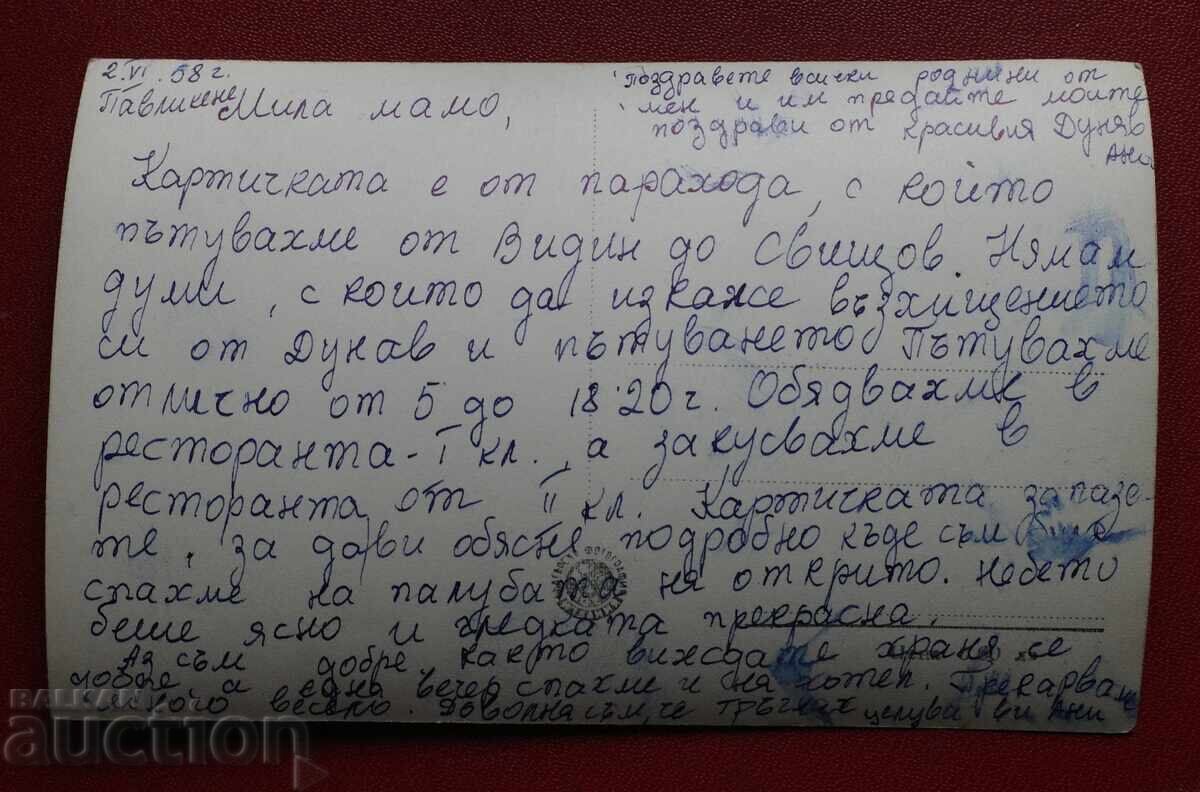 2.VI.58 г.
Павликене
Мила мамо,
Поздравете всички роднини от
мен и им предайте моите
поздрави от красивия Дунав
Ани
Картичката е от парахода, с който
пътувахме от Видин до Свищов. Нямам
думи, с които да изкаже възхищението
си от Дунав и пътуването Пътувахме
отлично от 5 до 18 20 г. Обядвахме в
ресторанта - I кл., а закусвахме в
ресторанта от II кл. Картичката запазе-
те, за да ви обясня подробно къде съм
спахме на палубата на открито. небето
беше ясно и гледката прекрасна.
Аз съм добре, както виждате храня се
добре а една вечер спахме и на хотел. Прекарваме
много весело. Доволна съм, че тръгнах целува ви Ани
БЪЛГАРСКА ФОТОГРАФИЯ
BALKAN
auction